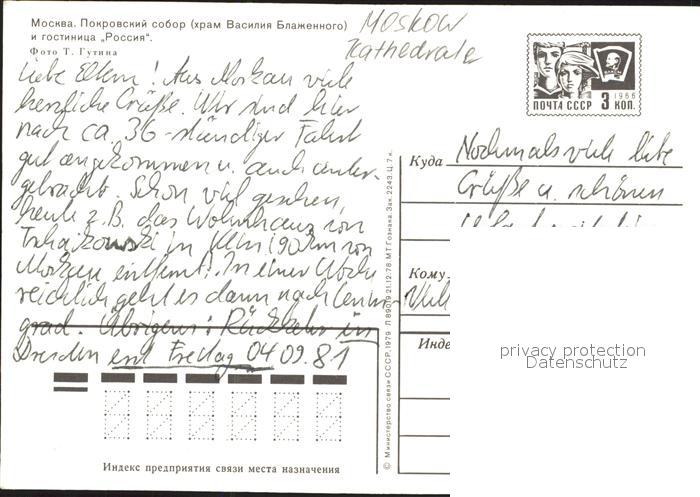 Москва. Покровский собор (храм Василия Блаженного)
и гостиница „Россия".
Фото Т. Гутина
Moskow
Kathedrale
Liebe Eltern! Aus Moskau viele
herzliche Grüße. Wir sind hier
nach ca. 36-stündiger Fahrt
gut angekommen u. auch unter-
gebracht. Schon viel gesehen,
heute z.B. das Wohnhaus von
Tschaikowski in Klin (90 km von
Moskau entfernt). In einer Woche
reichlich geht es dann nach Lenin-
grad. Übrigens: Rückkehr in
Dresden erst Freitag 04.09.81
ПОЧТА СССР 3 КОП.
1966
Куда Nochmals viele liebe
Grüße u. schönen
Кому
Инде
privacy protection
Datenschutz
© Министерство связи СССР, 1979. Л 89019 21.12.78. МТ Гознака. Зак. 2243. Ц. 7 к.
Индекс предприятия связи места назначения